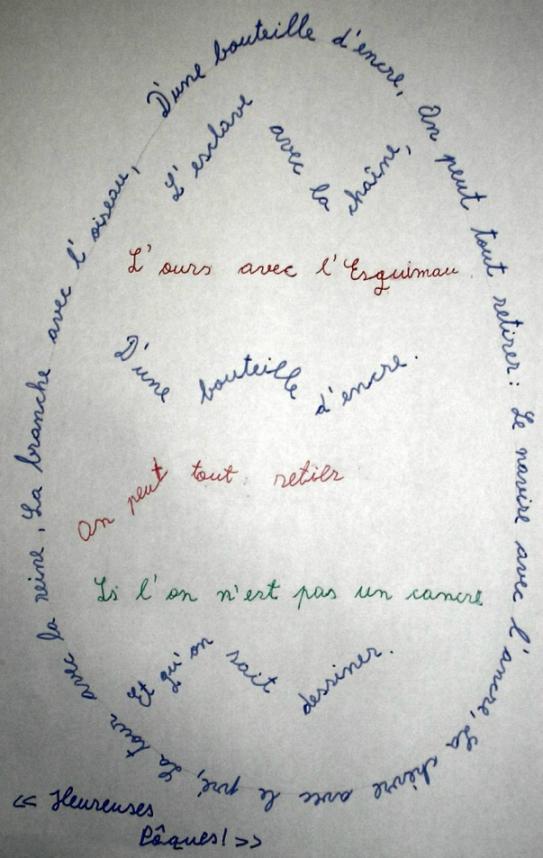 D'une bouteille d'encre, On peut tout retirer: Le navire avec l'ancre, La chèvre avec le pré, La tour avec la reine, La branche avec l'oiseau,
L'esclave avec la chaîne,
L'ours avec l'Esquimau
D'une bouteille d'encre.
On peut tout retier
Si l'on n'est pas un cancre
Et qu'on sait dessiner.
<< Heureuses
Pâques! >>